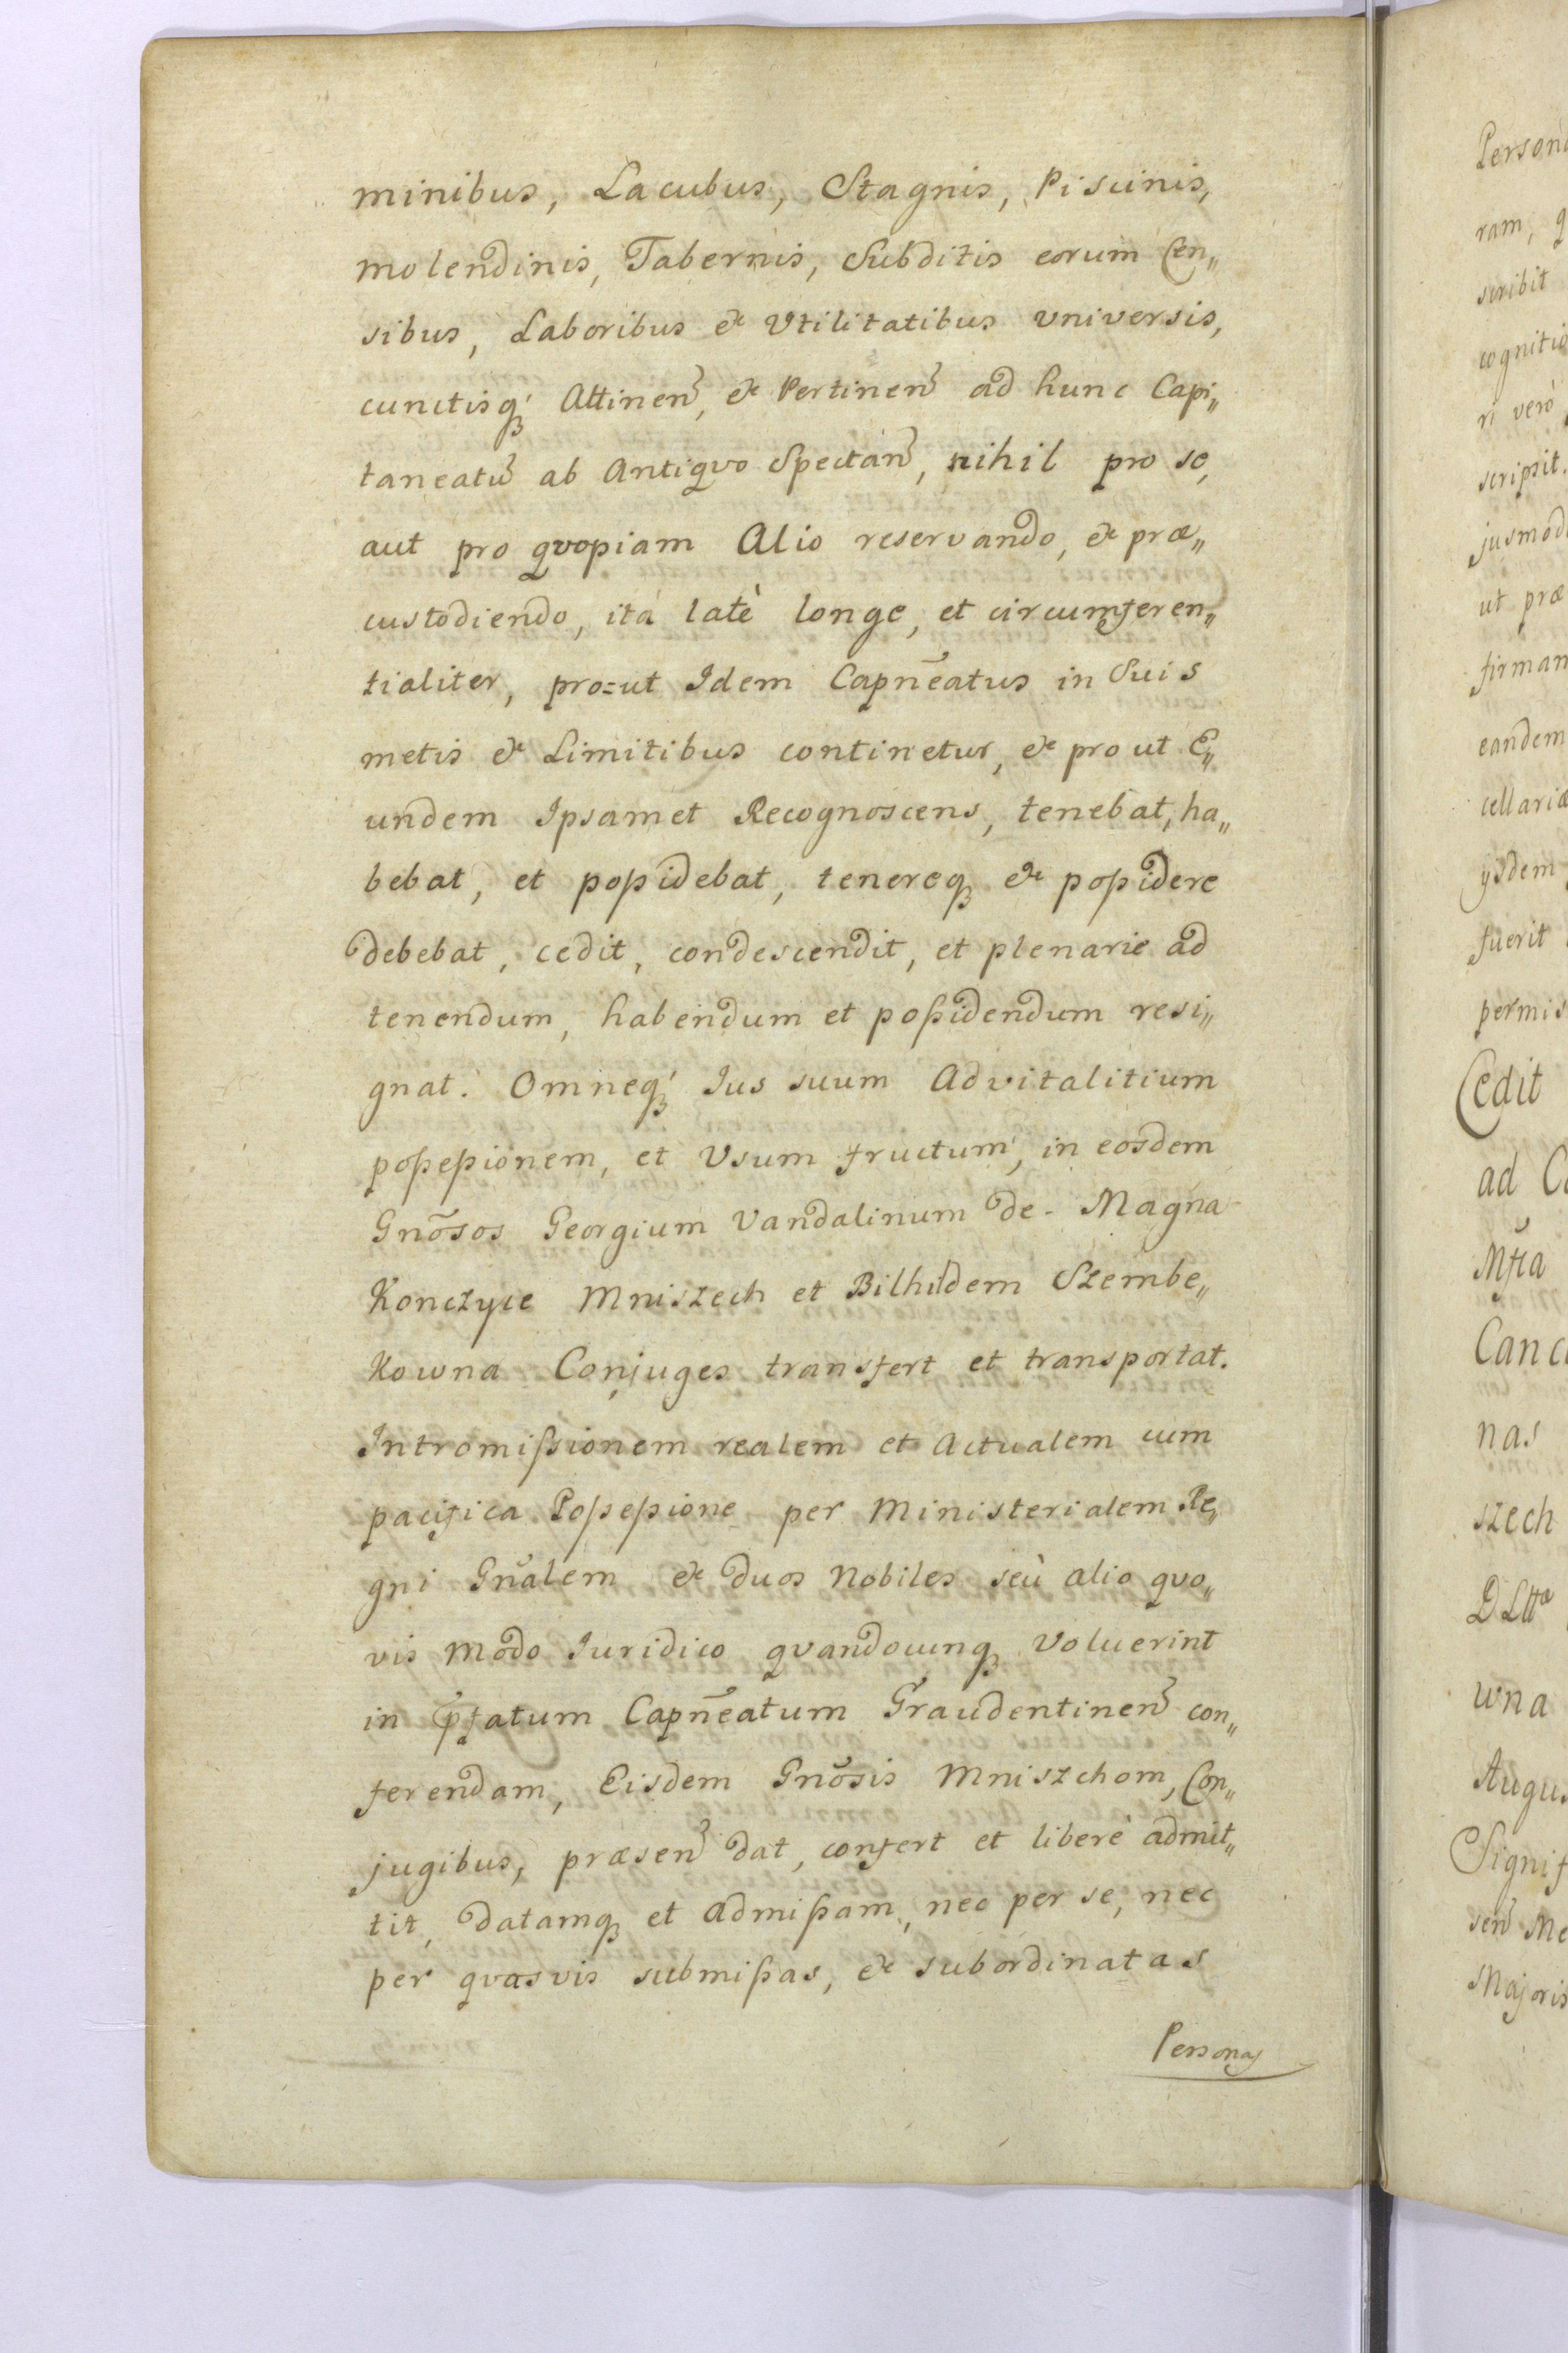 minibus, Lacubus, Stagnis, Piscinis,
molendinis, Tabernis, Subditis eorum Cen„
sibus, Laboribus & Vtilitatibus vniversis,
cunctisq́ꝫ Attineñ, & Pertineñ ad hunc Capi„
taneatũ ab Antiqvo Spectañ, nihil pro se,
aut pro qvopiam Alio reservando, & præ„
custodiendo, ità latè longe, et circumferen„
tialiter, pro=ut Idem Capñeatus in Suis
metis & Limitibus continetur, & pro ut E„
undem Ipsamet Recognoscens, tenebat, ha„
bebat, et poßidebat, tenereqꝫ & poßidere
debebat, cedit, condescendit, et plenarie ad
tenendum, habendum et poßidendum resi„
gnat. Omneq́ꝫ Ius suum Advitalitium
poßeßionem, et Vsum fructum, in eosdem
Gnõsos Georgium Vandalinum de Magna
Konczyce Mniszech et Bilhildem Szembe„
Kowna Conjuges transfert et transportat.
Intromißionem realem et Actualem cum
pacifica Poßeßione per Ministerialem Re„
gni Gñalem & duos Nobiles seù alio qvo„
vis modo Iuridico qvandocunqꝫ Voluerint
in p̃fatum Capñeatum Graudentineñ con„
ferendam, Eisdem Gnõsis Mniszchom, Con„
jugibus, præseñ dat, confert et liberè admit„
tit, datamqꝫ et admißam, nec per se, nec
per qvasvis submißas, & subordinatas
Personas
Persona
ram, q
scribit
cognitio
ri verò
scripsit.
jusmod
ut præ
firman
eandem
cellariæ
ysdem
fuerit
permis
Cedit
ad C
Mfta
Canc
nas
szech
wna
Augus
Signif
señ Me
Majoris